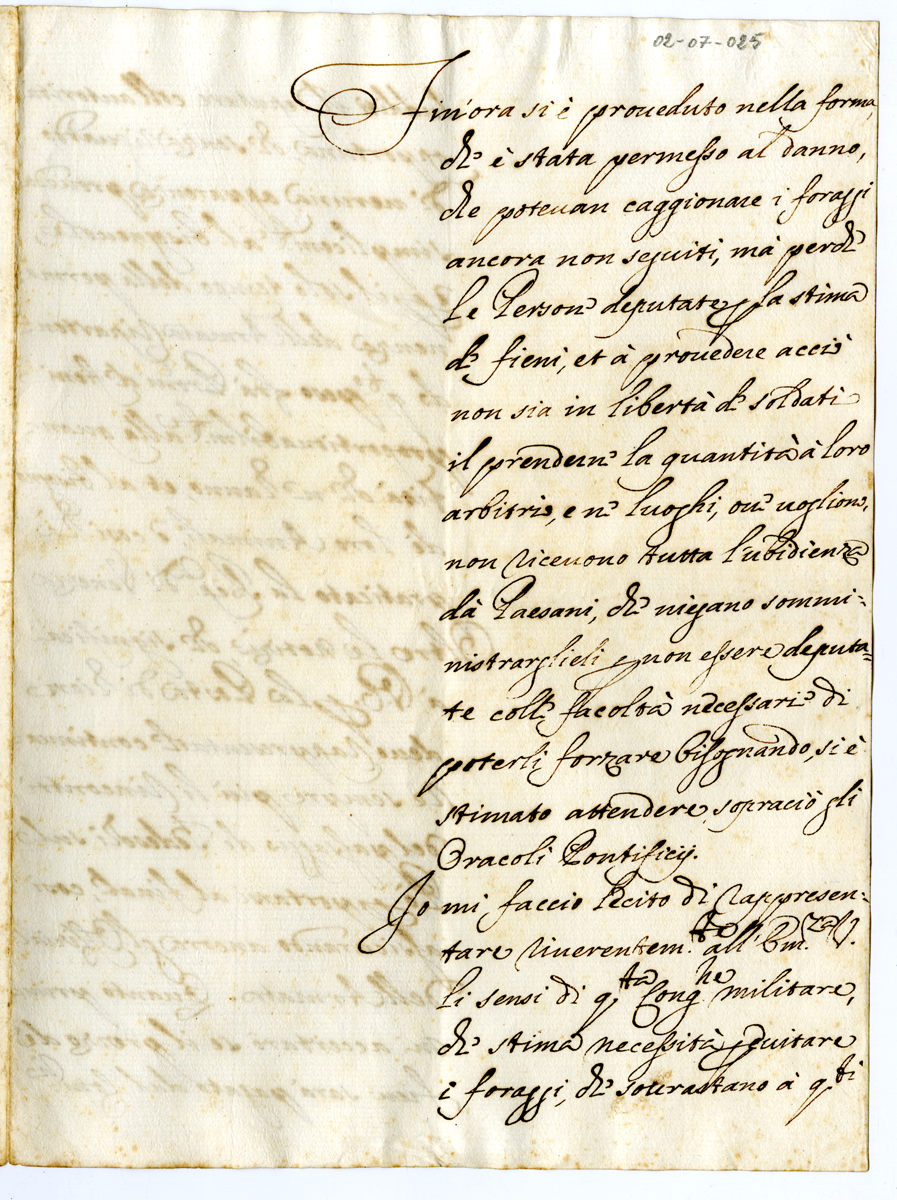 02-07-025
Fin'ora si è proueduto nella forma,
ch.e è stata permesso al danno,
che poteuan caggionare i foraggi
ancora non seguiti, mà perch.e
le Person.e deputate p la stima
de fieni, et à prouedere acciò
non sia in libertà de soldati
il prendern.e la quantità à loro
arbitrio, e ne luoghi, oue uoglion,
non riceuono tutta l'ubidienza
dà Paesani, ch.e niegano sommi=
nistrarglieli p non essere deputa=
te coll.e facoltà necessarie di
poterli forzare bisognando, si è
stimato attendere sopraciò gli
Oracoli Pontificij.
Io mi faccio lecito di rappresen=
tare riuerentem.te all' Em.za V.
li sensi di q.ta Cong.ne militare,
ch.e stima necessità p euitare
i foraggi, ch.e sourastano à q.ti